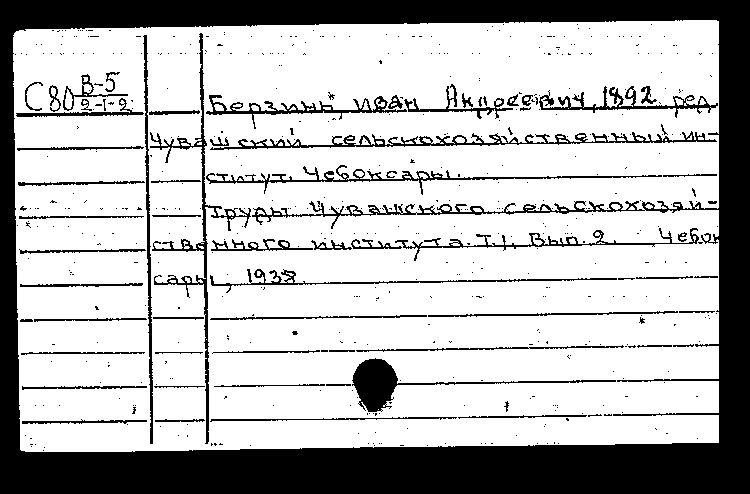 С80 В-5
2-1-2
Берзинь, Иван Андреевич, 1892 ред.
Чувашский сельскохозяйственный ин-
ститут. Чебоксары.
Труды Чувашского сельскохозяй-
ственного института. Т.1. Вып. 2. Чебок
сары, 1938